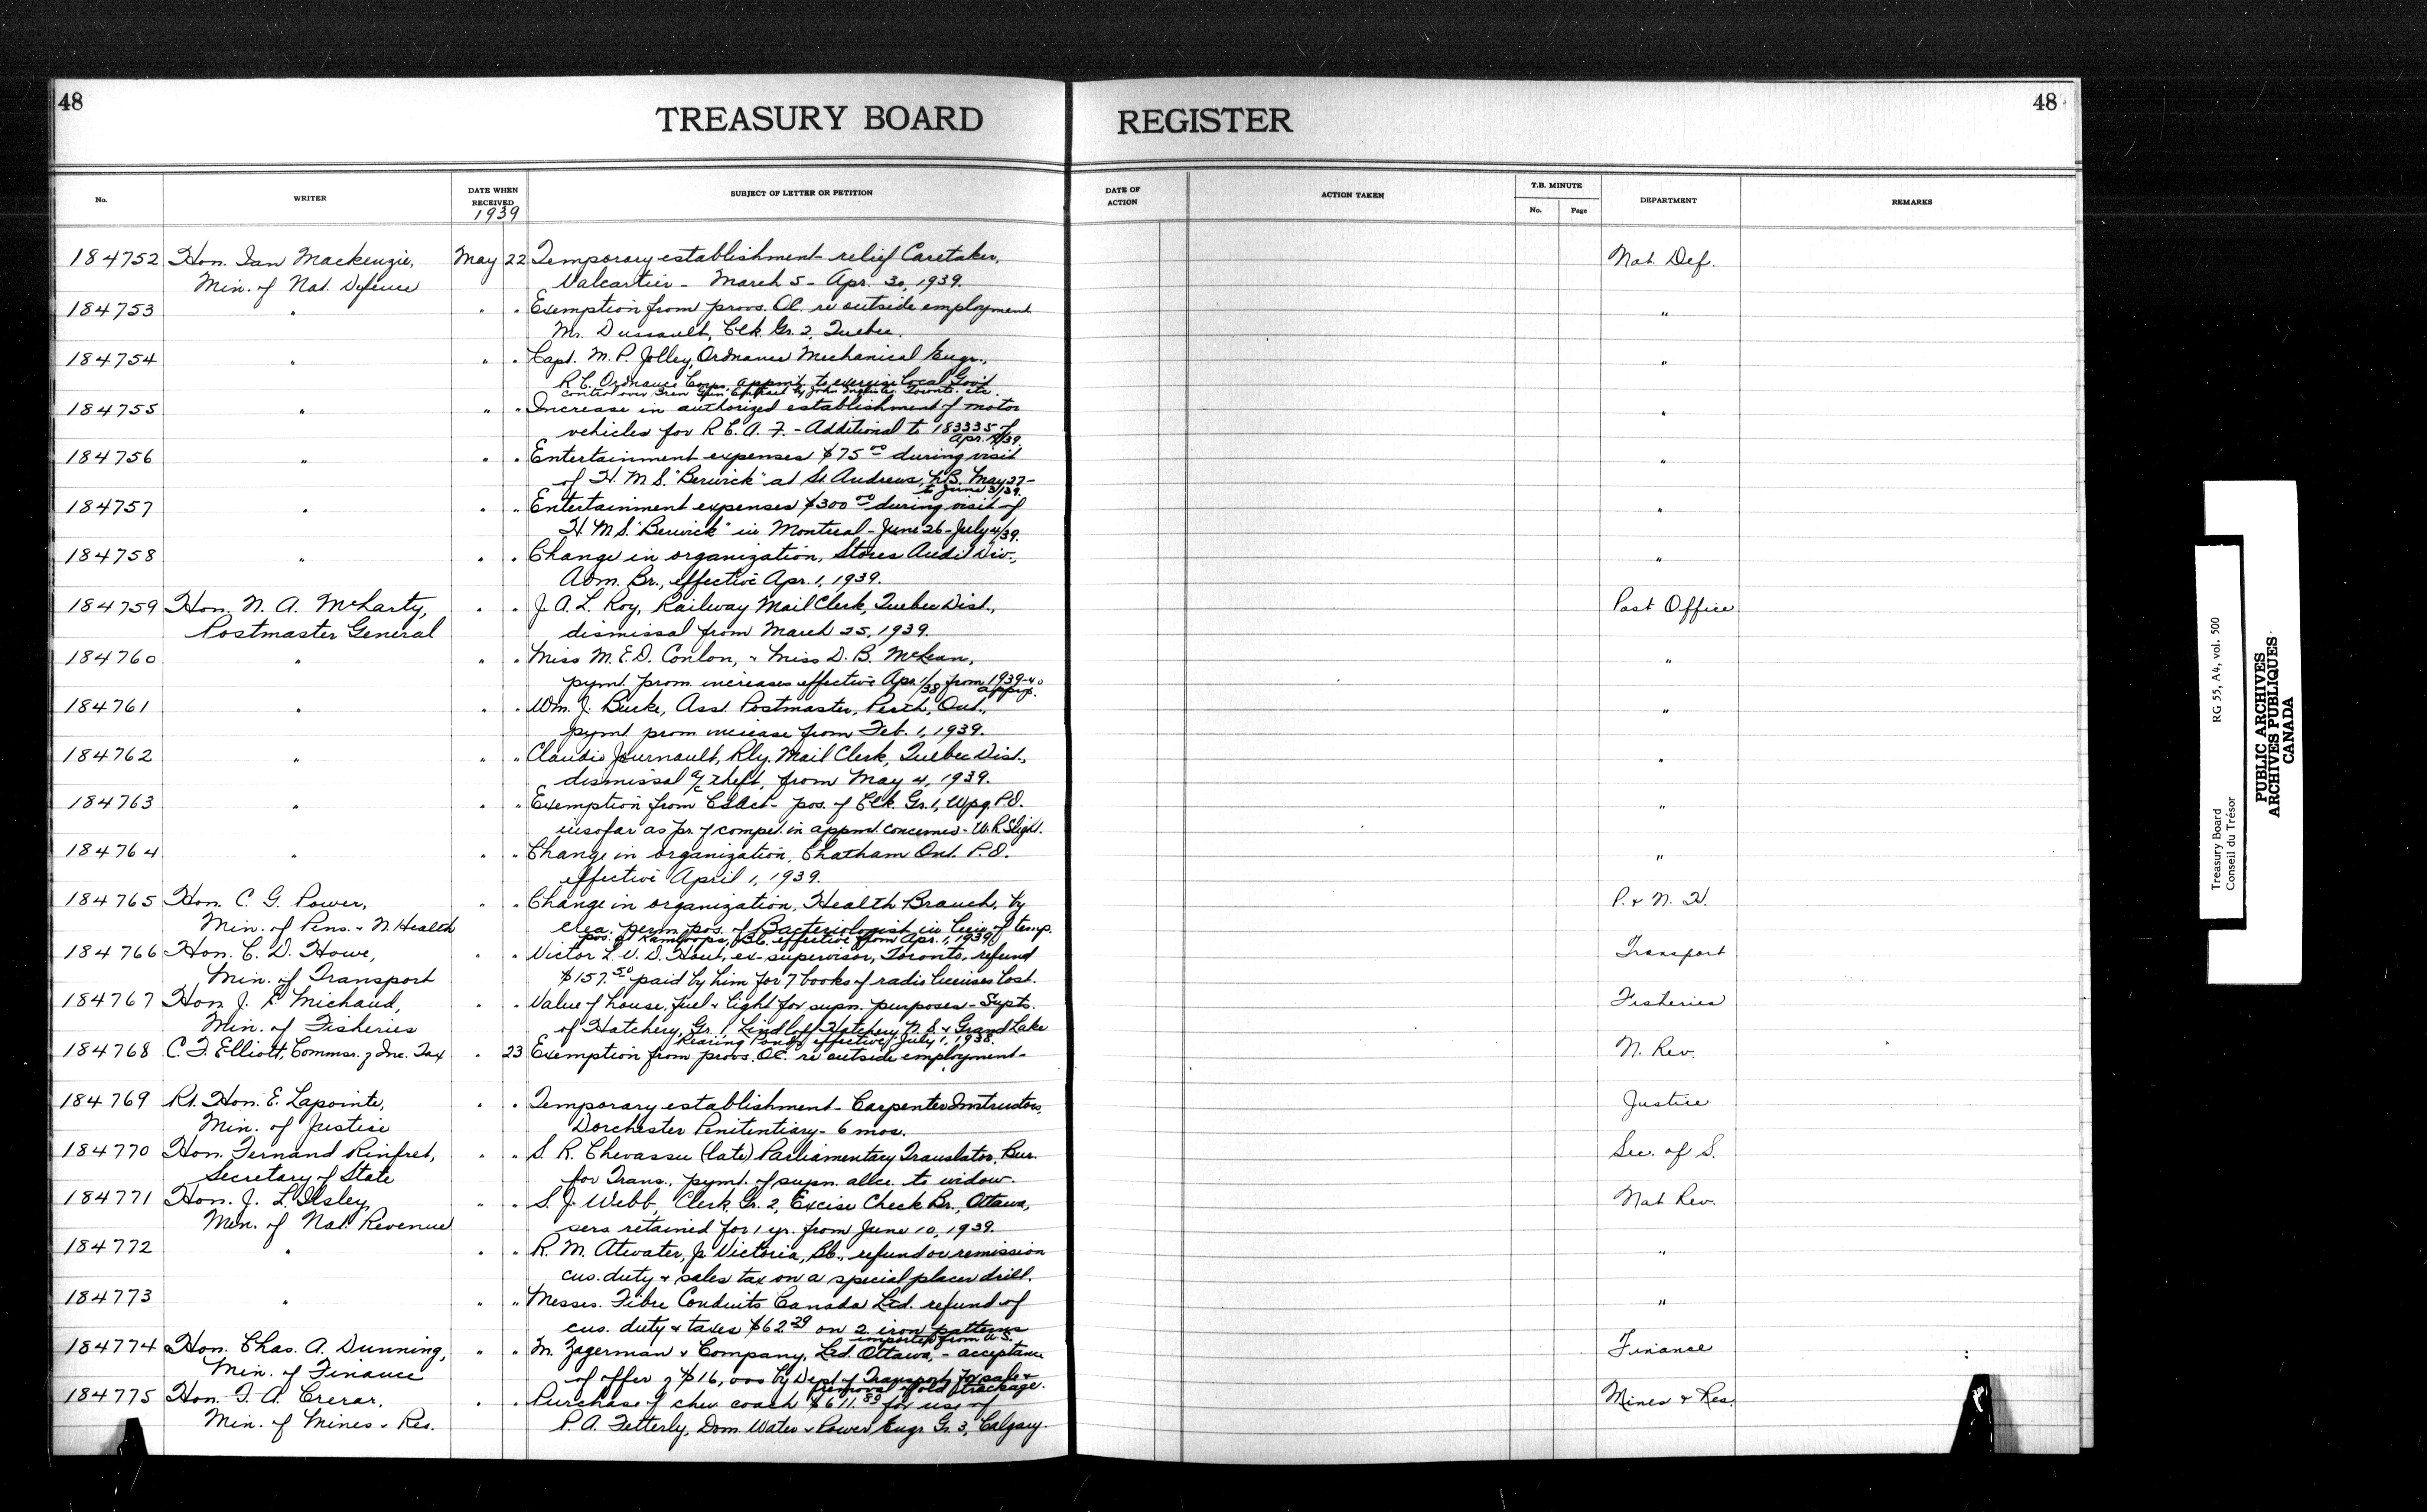 48
TREASURY BOARD REGISTER
48
No. WRITER DATE WHEN RECEIVED SUBJECT OF LETTER OR PETITION DATE OF ACTION ACTION TAKEN T.B. MINUTE No. Page DEPARTMENT REMARKS
1939
184752 Hon. Ian Mackenzie, May 22 Temporary establishment - relief Caretaker, Nat. Def.
Min. of Nat. Defence Valcartier - March 5 - Apr. 30, 1939.
184753 " " " Exemption from provs. OC. re outside employment "
Mr. Dussault, Clk. Gr. 2, Quebec.
184754 " " " Capt. M. P. Jolley, Ordnance Mechanical Engr., "
R.C. Ordnance Corps, appmt. to exercise local Gov't
control over Bren Gun Contract by John Inglis Toronto etc.
184755 " " " Increase in authorized establishment of motor "
vehicles for R.C.A.F. - Additional to 183335 of
Apr.
184756 " " " Entertainment expenses $75 00 during visit "
of H.M.S. "Berwick" at St. Andrews, N.B. May 27 -
to June 3/39.
184757 " " " Entertainment expenses $300 00 during visit of "
H.M.S. "Berwick" in Montreal - June 26 - July 4/39.
184758 " " " Change in organization, Stores Audit Div., "
Adm. Br., effective Apr. 1, 1939.
184759 Hon. N. A. McLarty, " " J. A. L. Roy, Railway Mail Clerk, Quebec Dist., Post Office
Postmaster General dismissal from March 25, 1939.
184760 " " " Miss M. E. D. Conlon, & Miss D. B. McLean, "
pymt. prom. increases effective Apr. 1/38 from 1939-40
approp.
184761 " " " Wm. J. Burke, Asst. Postmaster, Perth, Ont., "
pymt. prom increase from Feb. 1, 1939.
184762 " " " Claudio Journault, Rly. Mail Clerk, Quebec Dist., "
dismissal a/c theft, from May 4, 1939.
184763 " " " Exemption from CSAct - pos. of Clk. Gr. 1, Wpg. P.O. "
insofar as pr. of compet. in appmt. concerned - W. R.
184764 " " " Change in organization, Chatham Ont. P.O. "
effective April 1, 1939.
184765 Hon. C. G. Power, " " Change in organization, Health Branch, by P. & N. H.
Min. of Pens. & N. Health crea. perm. pos. of Bacteriologist in lieu of temp.
pos. at Kamloops, B.C. effective from Apr. 1, 1939
184766 Hon. C. D. Howe, " " Victor L. V. D. Hout, ex-supervisor, Toronto, refund Transport
Min. of Transport $157.50 paid by him for 7 books of radio licenses lost.
184767 Hon. J. E. Michaud, " " Value of house, fuel & light for supn. purposes - Supts. Fisheries
Min. of Fisheries of Hatchery, Gr. 1, Lindloff Hatchery N.S. & Grand Lake
Rearing Ponds effective July 1, 1938.
184768 C. F. Elliott, Commsr. of Inc. Tax " 23 Exemption from provs. OC. re outside employment - N. Rev.
184769 Rt. Hon. E. Lapointe, " " Temporary establishment - Carpenter Instructor, Justice
Min. of Justice Dorchester Penitentiary - 6 mos.
184770 Hon. Fernand Rinfret, " " S. R. Chevassu (late) Parliamentary Translator, Bur. Sec. of S.
Secretary of State for Trans., pymt. of supn. allce. to widow.
184771 Hon. J. L. Ilsley, " " S. J. Webb, Clerk, Gr. 2, Excise Check Br., Ottawa, Nat Rev.
Min. of Nat. Revenue sers retained for 1 yr. from June 10, 1939.
184772 " " " R. M. Atwater, Jr. Victoria, B.C., refund or remission "
cus. duty & sales tax on a special placer drill.
184773 " " " Messrs. Fibre Conduits Canada Ltd. refund of "
cus. duty & taxes $62 29 on 2 iron patterns
imported from U.S.
184774 Hon. Chas. A. Dunning, " " M. Zagerman & Company, Ltd. Ottawa, - acceptance Finance
Min. of Finance of offer of $16,000 by Dept. of Transport for sale &
removal of old trackage.
184775 Hon. T. A. Crerar, " " Purchase of chev coach $611.80 for use of Mines & Res.
Min. of Mines & Res. P. A. Fetterly, Dom. Water & Power Engr Gr. 3, Calgary.
Treasury Board RG 55, A4, vol. 500
Conseil du Trésor
PUBLIC ARCHIVES
ARCHIVES PUBLIQUES
CANADA